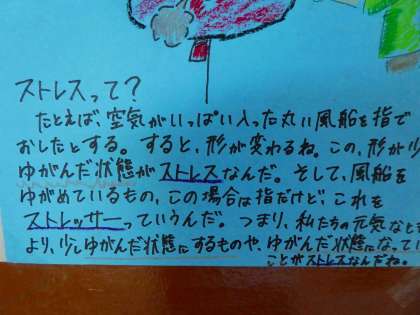 ストレスって?
たとえば、空気がいっぱい入った丸い風船を指で
おしたとする。すると、形が変わるね。この、形が少
ゆがんだ状態がストレスなんだ。そして、風船を
ゆがめているもの、この場合は指だけど、これを
ストレッサーっていうんだ。つまり、私たちの元気なとき
より、少しゆがんだ状態にするものや、ゆがんだ状態になってい
ことがストレスなんだね。